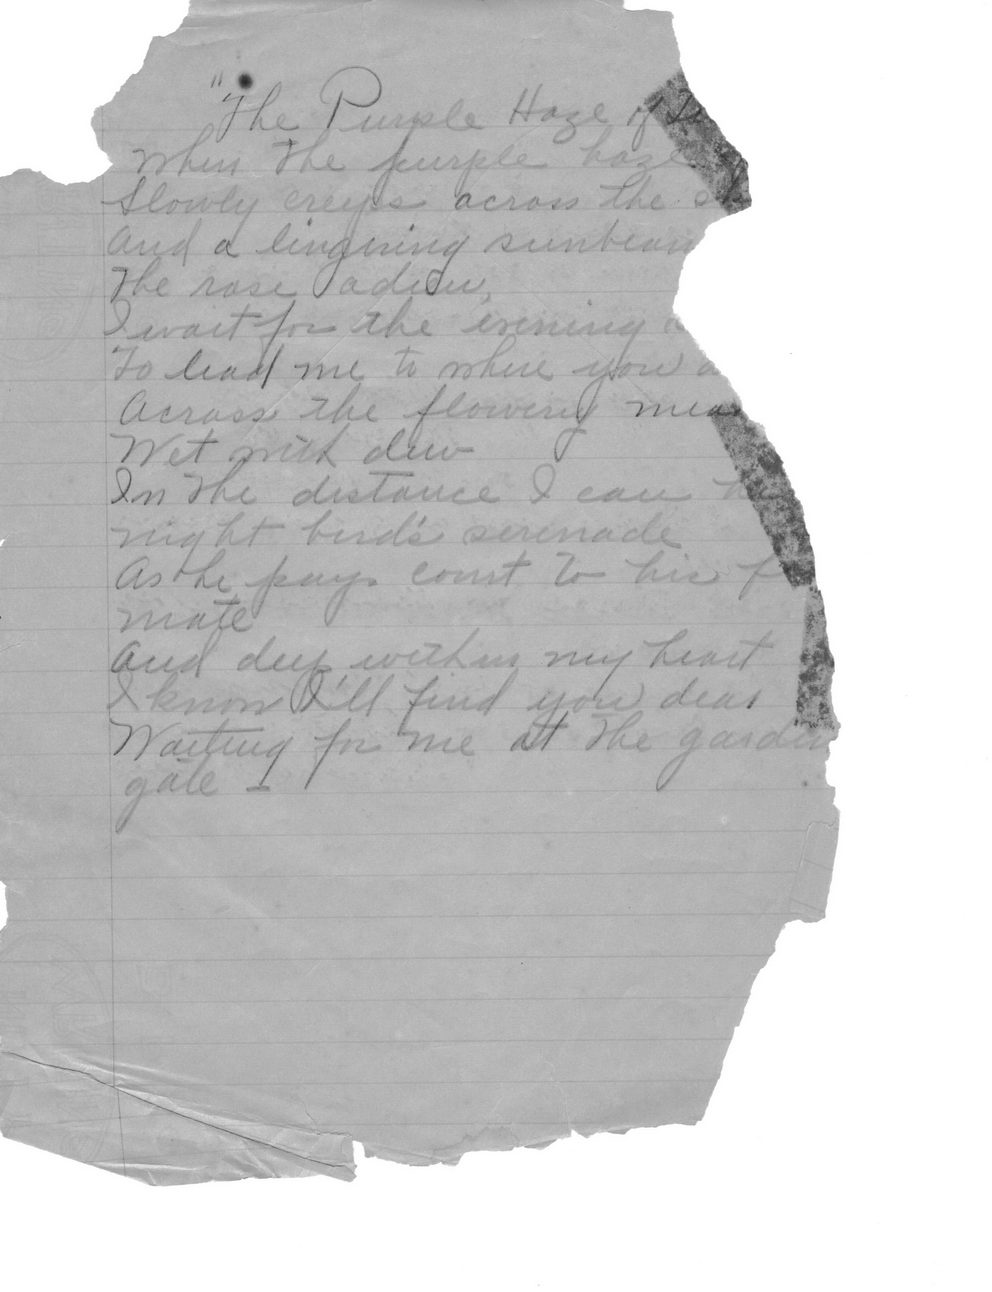 "The Purple Haze of
When the purple haze
Slowly creeps across the
And a lingering sunbeam
The rose adieu,
I wait for the evening
To lead me to where you
Across the flowery
Wet with dew
In the distance I can
night bird's serenade
As he pays court to his
mate
And deep within my heart
I know I'll find you dear
Waiting for me at the garden
gate –